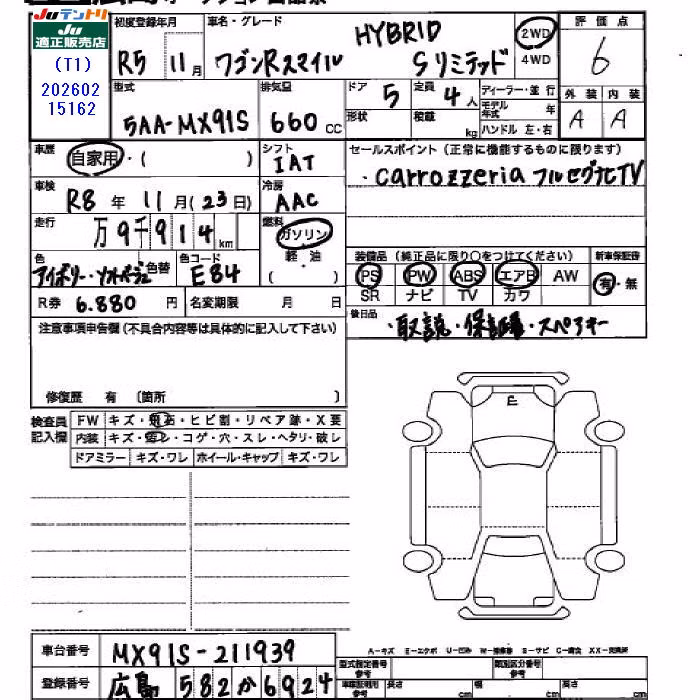 広島オークション出品票
Juテントリ
Ju
適正販売店
(T1)
202602
15162
初度登録年月
R5 11月
車名・グレード
HYBRID
ワゴンRスマイル Sリミテッド
2WD
4WD
評価点
6
型式
5AA-MX91S
排気量
660 CC
ドア
5
定員
4人
形状
積載
kg
ディーラー・並行
モデル年式 年
ハンドル 左・右
外装 内装
A A
車歴
自家用・( )
シフト
IAT
セールスポイント (正常に機能するものに限ります)
・carrozzeria フルセグナビTV
車検
R8 年 11 月 (23日)
冷房
AAC
走行
万9千914km
燃料
ガソリン
軽油
( )
色
アイボリー・ソフトベージュ
色替
色コード
E84
装備品 (純正品に限り○をつけてください)
新車保証書
PS PW ABS エアB AW
SR ナビ TV カワ
有・無
R券 6.880 円
名変期限 月 日
後日品
・取説・保証書・スペアキー
注意事項申告欄 (不具合内容等は具体的に記入して下さい)
修復歴 有 [箇所 ]
検査員
記入欄
FW キズ・飛石・ヒビ割・リペア跡・X要
内装 キズ・汚レ・コゲ・穴・スレ・ヘタリ・破レ
ドアミラー キズ・ワレ ホイール・キャップ キズ・ワレ
E
A-キズ E-エクボ U-凹み W-補修跡 S-サビ C-腐食 XX-交換済
車台番号
MX91S-211939
登録番号
広島 582 か 6924
型式指定番号
参考
類別区分番号
参考
車検証明用
参考
長さ cm
幅 cm
高さ cm